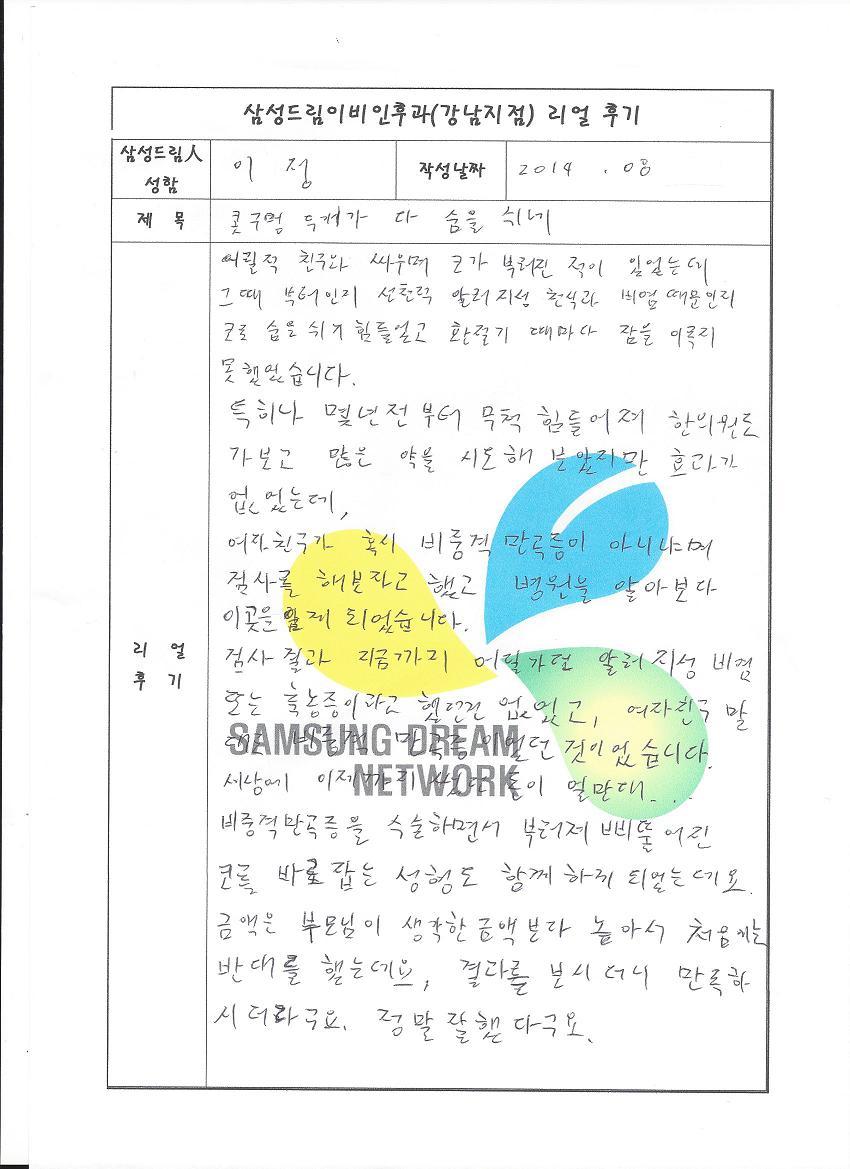 삼성드림이비인후과(강남지점) 리얼 후기
삼성드림人
성함
이 정
작성날짜
2014 . 08
제 목
콧구멍 두개가 다 숨을 쉬네
리 얼
후 기
어릴적 친구와 싸우며 코가 부러진 적이 있었는데
그때 부터인지 선천적 알러지성 천식과 비염 때문인지
코로 숨을 쉬기 힘들었고 환절기 때마다 잠을 이루지
못했었습니다.
특히나 몇년전부터 무척 힘들어져 한의원도
가보고 많은 약을 시도해 보았지만 효과가
없었는데,
여자친구가 혹시 비중격 만곡증이 아니냐며
검사를 해보자고 했고 병원을 알아보다
이곳을 알게 되었습니다.
검사 결과 지금까지 어딜가던 알러지성 비염
또는 축농증이라고 했던건 없었고, 여자친구 말
대로 비중격 만곡증이었던 것이었습니다.
세상에 이제까지 쓴 돈이 얼만대...
비중격만곡증을 수술하면서 부러져 삐뚤어진
코를 바로잡는 성형도 함께 하게 되었는데요.
금액은 부모님이 생각한 금액보다 높아서 처음에는
반대를 했는데요, 결과를 보시더니 만족하
시더라구요. 정말 잘했다구요.
SAMSUNG DREAM
NETWORK